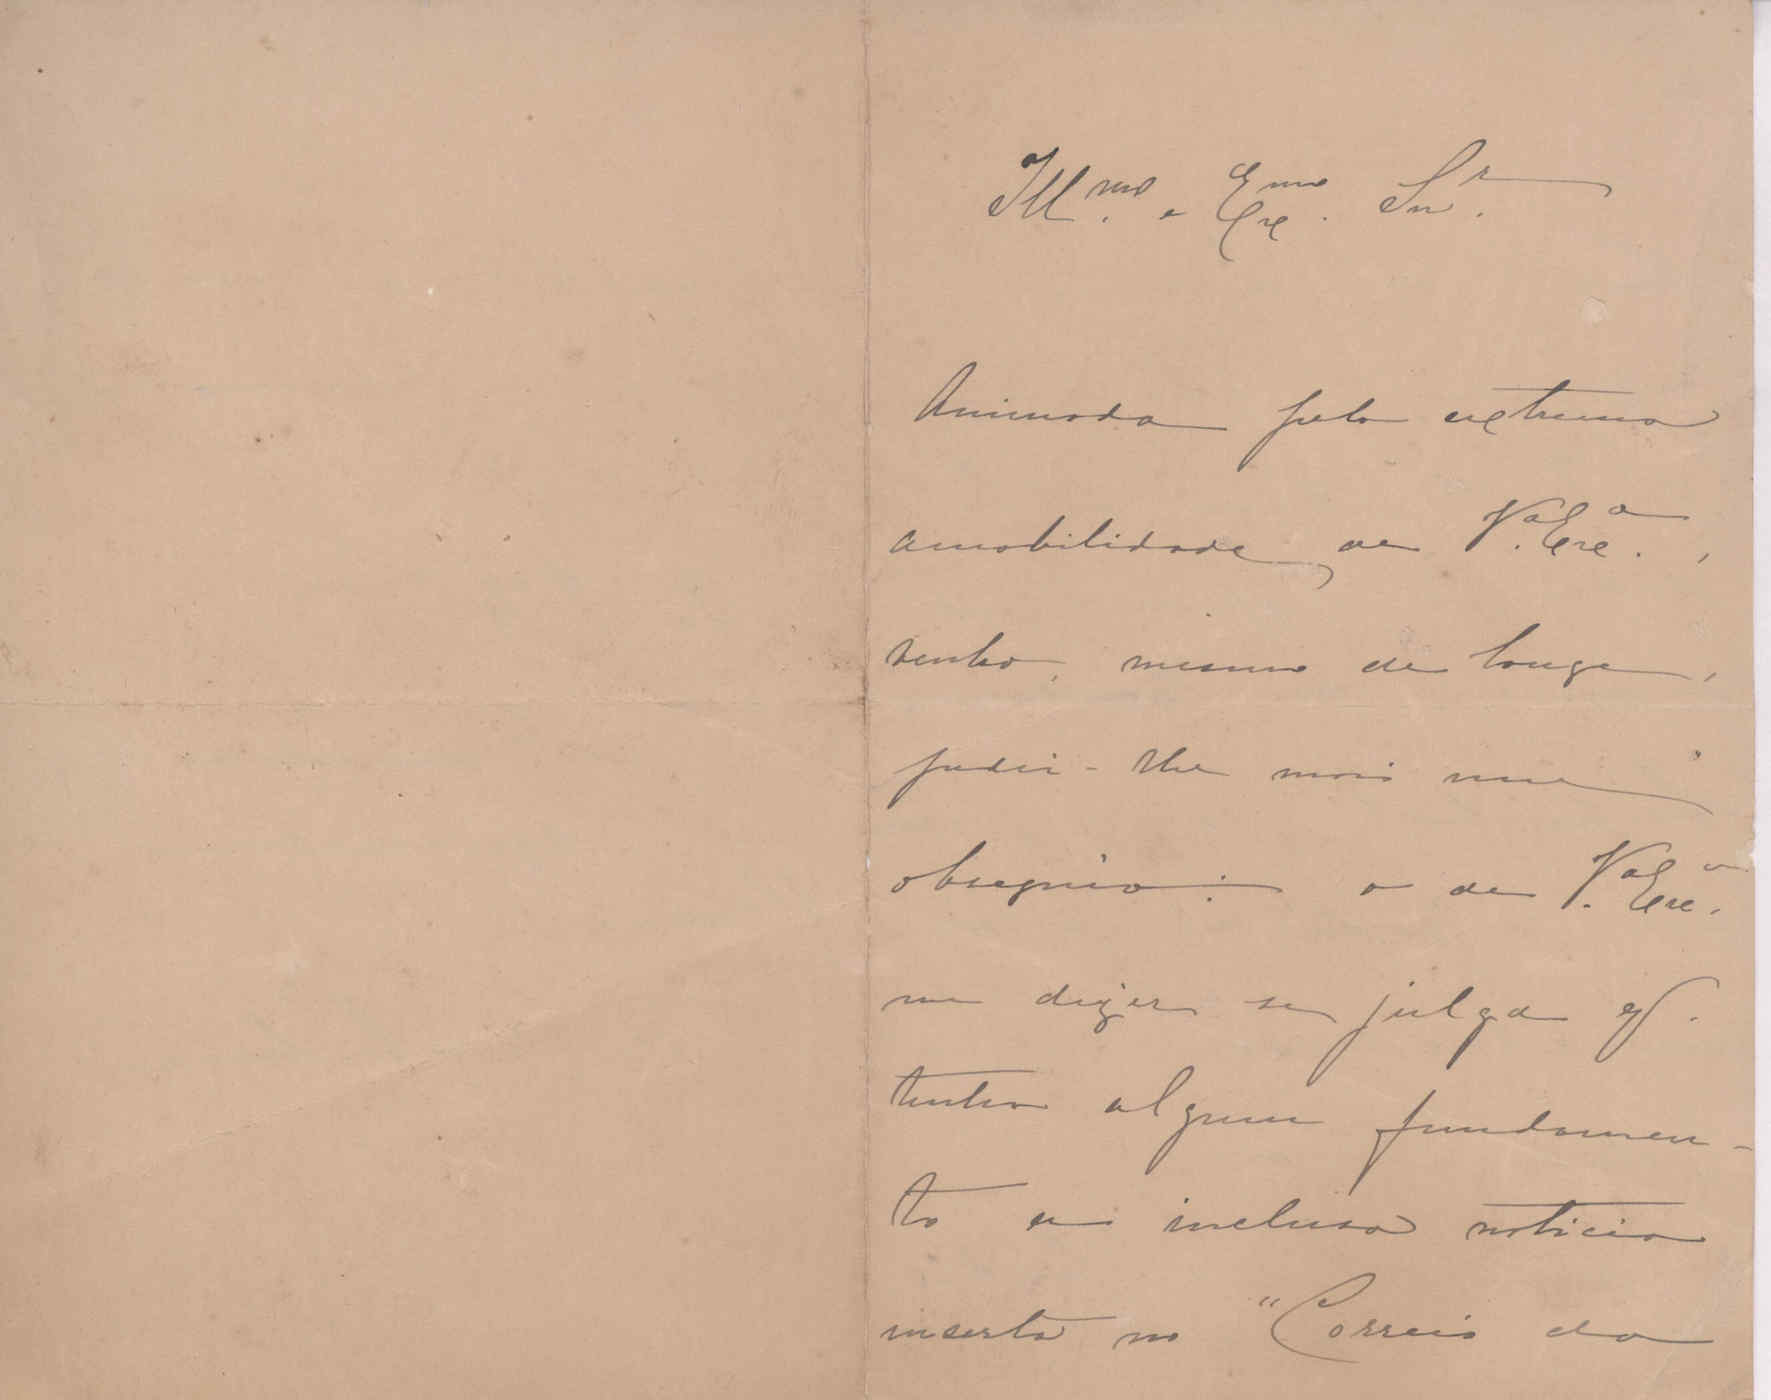 Ill.mo e Exc.mo Snr.
Animada pela extrema
amabilidade de V.a Exc.a,
venho, mesmo de longe,
pedir-lhe mais um
obsequio: o de V.a Exc.a
me dizer se julga q.
tenha algum fundamen-
to a inclusa noticia
inserta no "Correio da